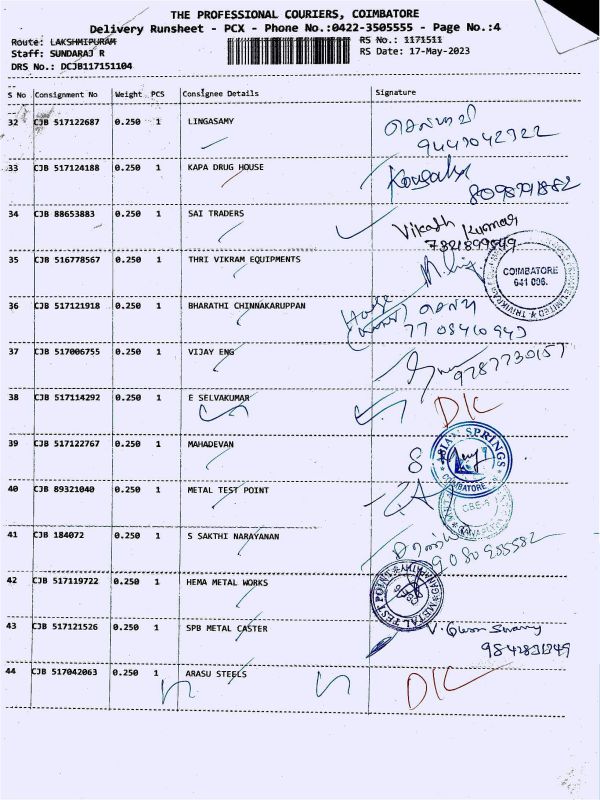 THE PROFESSIONAL COURIERS, COIMBATORE
Delivery Runsheet - PCX - Phone No.:0422-3505555 - Page No.:4
Route: LAKSHMIPURAM RS No.: 1171511
Staff: SUNDARAJ R RS Date: 17-May-2023
DRS No.: DCJB117151104
S No Consignment No Weight PCS Consignee Details Signature
32 CJB 517122687 0.250 1 LINGASAMY
33 CJB 517124188 0.250 1 KAPA DRUG HOUSE
34 CJB 88653883 0.250 1 SAI TRADERS Vikash Kumar
35 CJB 516778567 0.250 1 THRI VIKRAM EQUIPMENTS COIMBATORE
641 006.
36 CJB 517121918 0.250 1 BHARATHI CHINNAKARUPPAN
7708410943
37 CJB 517006755 0.250 1 VIJAY ENG 9787730157
38 CJB 517114292 0.250 1 E SELVAKUMAR D/C
39 CJB 517122767 0.250 1 MAHADEVAN ASIAN SPRINGS
COIMBATORE
40 CJB 89321040 0.250 1 METAL TEST POINT
41 CJB 184072 0.250 1 S SAKTHI NARAYANAN
9080985582
42 CJB 517119722 0.250 1 HEMA METAL WORKS METAL TEST POINT
43 CJB 517121526 0.250 1 SPB METAL CASTER
9842831349
44 CJB 517042063 0.250 1 ARASU STEELS D/C